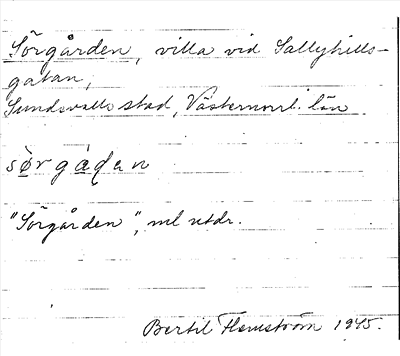 Sörgården, villa vid Sallyhills-
gatan,
Sundsvalls stad, Västernorrl. län
sørgàɖan
"Sörgården", enl utdr.
Bertil Flemström 1945.